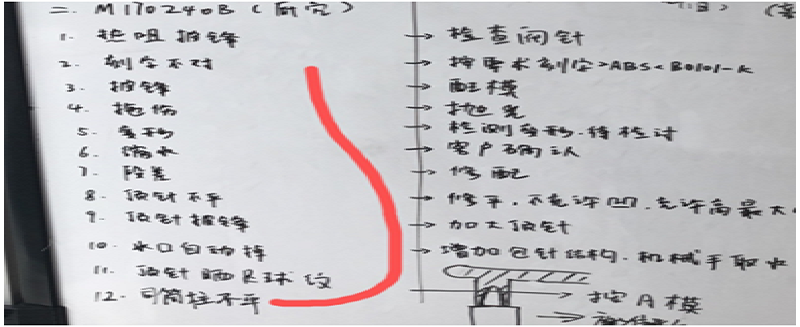 二. M170240B(研究)
1. 热咀披锋 → 检查阀针
2. 刻字不对 → 按要求刻字>ABS<B0101-K
3. 披锋 → 配模
4. 拖伤 → 抛光
5. 变形 → 检测变形.待检讨
6. 缩水 → 客户确认
7. 段差 → 修配
8. 顶针不平 → 修平,不允许凹.允许高最大
9. 顶针披锋 → 加大顶针
10. 水口自动掉 → 增加包针结构.机械手取水
11. 顶针晒 纹
12. 司筒柱不平
→ 按A模